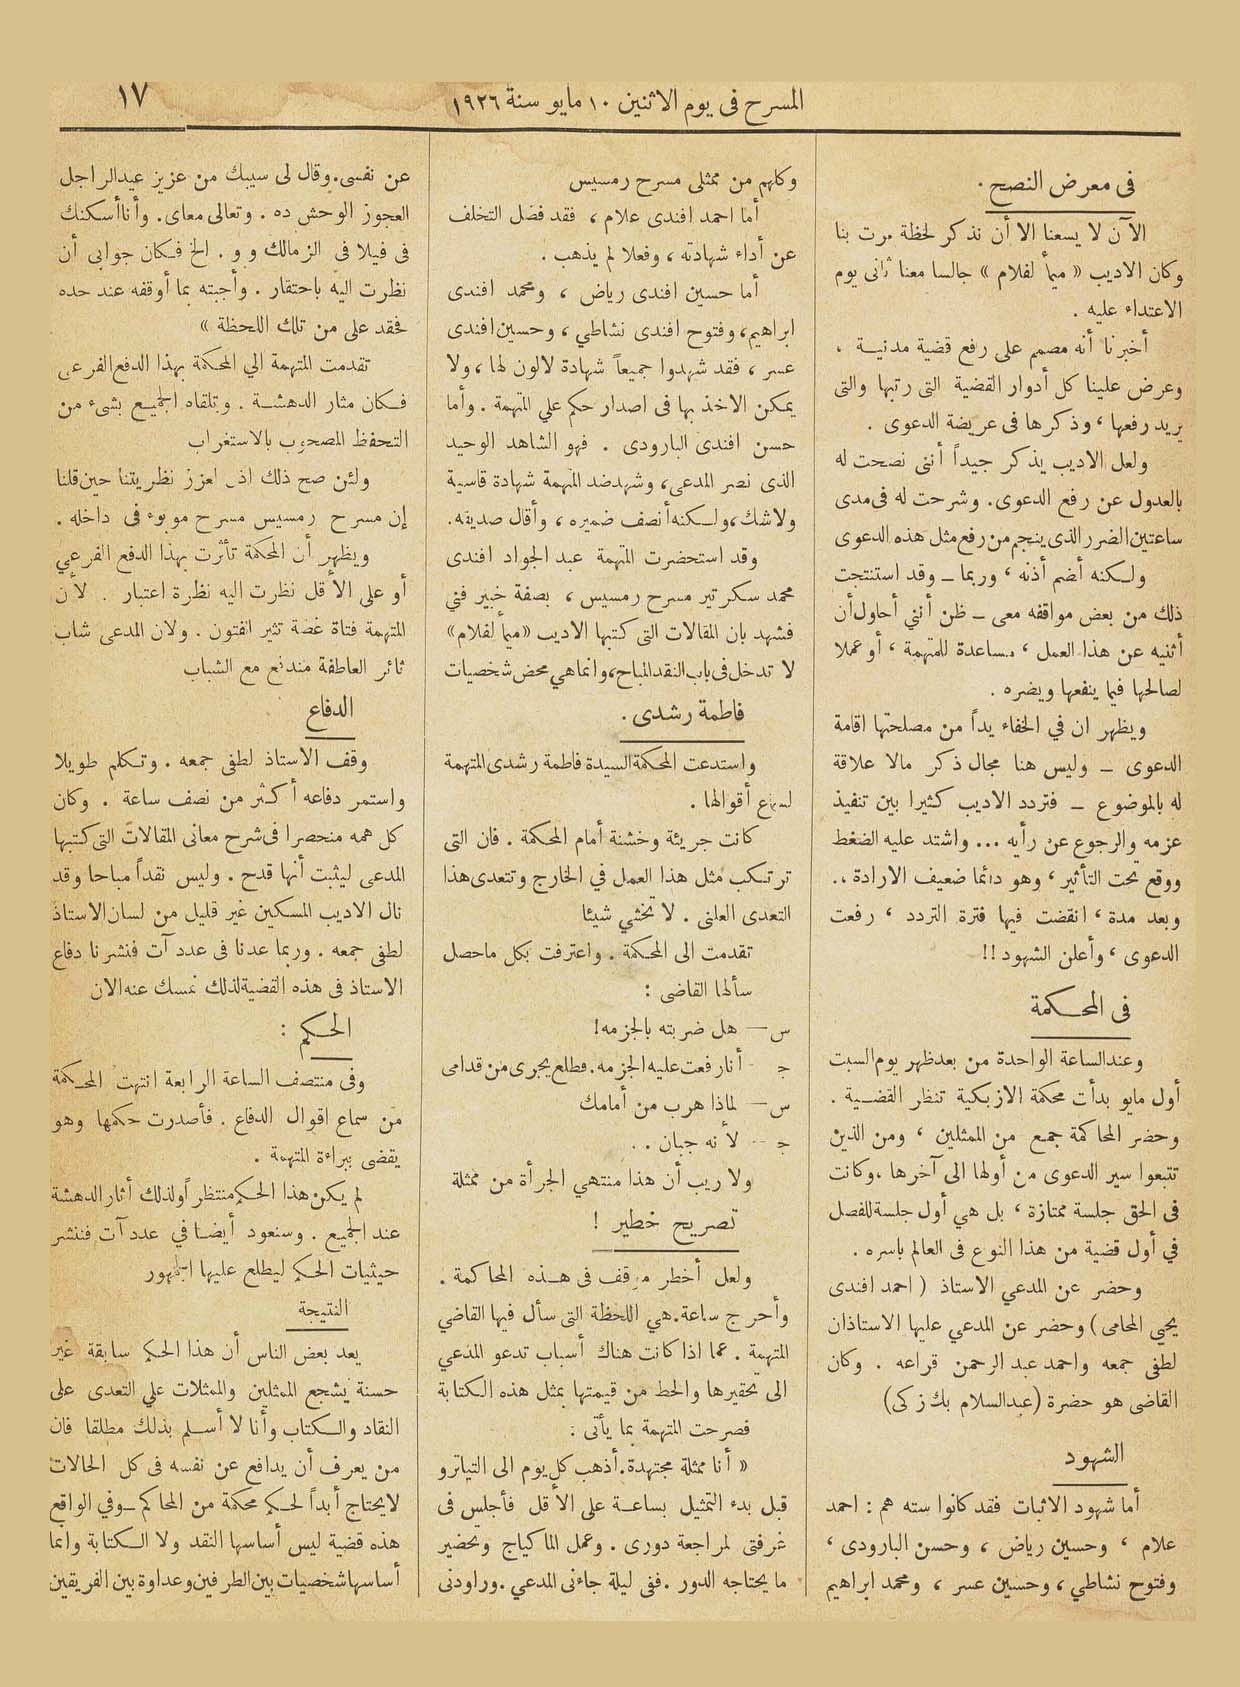 المسرح فى يوم الاثنين ١٠ مايو سنة ١٩٢٦
١٧
فى معرض النصح.
الآن لا يسعنا الا أن نذكر لحظة مرت بنا
وكان الاديب « ميم ألف لام » جالسا معنا ثانى يوم
الاعتداء عليه .
أخبرنا أنه مصمم على رفع قضية مدنية .
وعرض علينا كل أدوار القضية التى رتبها والتى
يريد رفعها ، وذكرها فى عريضة الدعوى .
ولعل الاديب يذكر جيداً أننى نصحت له
بالعدول عن رفع الدعوى. وشرحت له فى مدى
ساعتين الضرر الذى ينجم من رفع مثل هذه الدعوى
ولكنه أضم أذنه ، وربما — وقد استنتجت
ذلك من بعض مواقفه معى — ظن أنني أحاول أن
أثنيه عن هذا العمل ، مساعدة للمتهمة ، أو عملا
لصالحها فيما ينفعها ويضره .
ويظهر ان في الخفاء يداً من مصلحتها اقامة
الدعوى — وليس هنا مجال ذكر مالا علاقة
له بالموضوع — فتردد الاديب كثيرا بين تنفيذ
عزمه والرجوع عن رأيه ... واشتد عليه الضغط
ووقع تحت التأثير ، وهو دائما ضعيف الارادة ..
وبعد مدة ، انقضت فيها فترة التردد ، رفعت
الدعوى ، وأعلن الشهود !!
فى المحكمة
وعند الساعة الواحدة من بعد ظهر يوم السبت
أول مايو بدأت محكمة الازبكية تنظر القضية .
وحضر المحاكمة جمع من الممثلين ، ومن الذين
تتبعوا سير الدعوى من أولها الى آخرها ، وكانت
فى الحق جلسة ممتازة ، بل هي أول جلسة للفصل
في أول قضية من هذا النوع فى العالم باسره .
وحضر عن المدعي الاستاذ ( احمد افندى
يحيي المحامى ) وحضر عن المدعي عليها الاستاذان
لطفى جمعه واحمد عبد الرحمن قراعه . وكان
القاضى هو حضرة (عبدالسلام بك زكى)
الشهود
أما شهود الاثبات فقد كانوا سته هم : احمد
علام ، وحسين رياض ، وحسن البارودى ،
وفتوح نشاطي ، وحسين عسر ، ومحمد ابراهيم
وكلهم من ممثلى مسرح رمسيس
أما احمد افندى علام ، فقد فضل التخلف
عن أداء شهادته ، وفعلا لم يذهب .
أما حسين افندى رياض ، ومحمد افندى
ابراهيم، وفتوح افندى نشاطي ، وحسين افندى
عسر ، فقد شهدوا جميعاً شهادة لالون لها ، ولا
يمكن الاخذ بها فى اصدار حكم علي المتهمة . وأما
حسن افندى البارودى . فهو الشاهد الوحيد
الذى نصر المدعى، وشهد ضد المتهمة شهادة قاسية
ولاشك، ولكنه أنصف ضميره ، وأقال صديقه.
وقد استحضرت المتهمة عبد الجواد افندى
محمد سكرتير مسرح رمسيس ، بصفة خبير فني
فشهد بان المقالات التى كتبها الاديب «ميم ألف لام»
لا تدخل فى باب النقد المباح، وانما هي محض شخصيات
فاطمة رشدى .
واستدعت المحكمة السيدة فاطمة رشدى المتهمة
لسماع أقوالها .
كانت جريئة وخشنة أمام المحكمة . فان التى
ترتكب مثل هذا العمل في الخارج وتتعدى هذا
التعدى العلنى . لا تخشي شيئا
تقدمت الى المحكمة . واعترفت بكل ماحصل
سألها القاضى :
س — هل ضربته بالجزمه !
ج — أنا رفعت عليه الجزمه. فطلع يجرى من قدامى
س — لماذا هرب من أمامك
ج — لأنه جبان . .
ولا ريب أن هذا منتهي الجرأة من ممثلة
تصريح خطير !
ولعل أخطر موقف فى هذه المحاكمة .
وأحرج ساعة. هي اللحظة التى سأل فيها القاضي
المتهمة . عما اذا كانت هناك أسباب تدعو المدعي
الى تحقيرها والحط من قيمتها بمثل هذه الكتابة
فصرحت المتهمة بما يأتى :
« أنا ممثلة مجتهدة. أذهب كل يوم الى التياترو
قبل بدء التمثيل بساعة على الأقل فأجلس فى
غرفتى لمراجعة دورى . وعمل الماكياج وتحضير
ما يحتاجه الدور . ففى ليلة جاءنى المدعي . وراودنى
عن نفسى. وقال لى سيبك من عزيز عيد الراجل
العجوز الوحش ده . وتعالى معاى. وأنا أسكنك
فى فيلا فى الزمالك و و . الخ فكان جوابى أن
نظرت اليه باحتقار . وأجبته بما أوقفه عند حده
فحقد على من تلك اللحظة »
تقدمت المتهمة الي المحكمة بهذا الدفع الفرعى
فكان مثار الدهشة . وتلقاه الجميع بشىء من
التحفظ المصحوب بالاستغراب
ولئن صح ذلك اذن لعزز نظريتنا حين قلنا
إن مسرح رمسيس مسرح موبوء فى داخله .
ويظهر أن المحكمة تأثرت بهذا الدفع الفرعي
أو على الأقل نظرت اليه نظرة اعتبار . لأن
المتهمة فتاة غضة تثير الفتون . ولان المدعى شاب
ثائر العاطفة مندفع مع الشباب
الدفاع
وقف الاستاذ لطفى جمعه . وتكلم طويلا
واستمر دفاعه أكثر من نصف ساعة . وكان
كل همه منحصرا فى شرح معانى المقالات التى كتبها
المدعى ليثبت أنها قدح . وليس نقداً مباحا وقد
نال الاديب المسكين غير قليل من لسان الاستاذ
لطفى جمعه . وربما عدنا فى عدد آت فنشرنا دفاع
الاستاذ فى هذه القضية لذلك نمسك عنه الان
الحكم :
وفى منتصف الساعة الرابعة انتهت المحكمة
من سماع اقوال الدفاع . فأصدرت حكمها وهو
يقضى ببراءة المتهمة .
لم يكن هذا الحكم منتظراً ولذلك أثار الدهشة
عند الجميع . وسنعود أيضا في عدد آت فننشر
حيثيات الحكم ليطلع عليها الجمهور
النتيجة
يعد بعض الناس أن هذا الحكم سابقة غير
حسنة يشجع الممثلين والممثلات علي التعدى على
النقاد والكتاب وأنا لا أسلم بذلك مطلقا فان
من يعرف أن يدافع عن نفسه فى كل الحالات
لايحتاج أبداً لحكم محكمة من المحاكم — وفي الواقع
هذه قضية ليس أساسها النقد ولا الكتابة وانما
أساسها شخصيات بين الطرفين وعداوة بين الفريقين